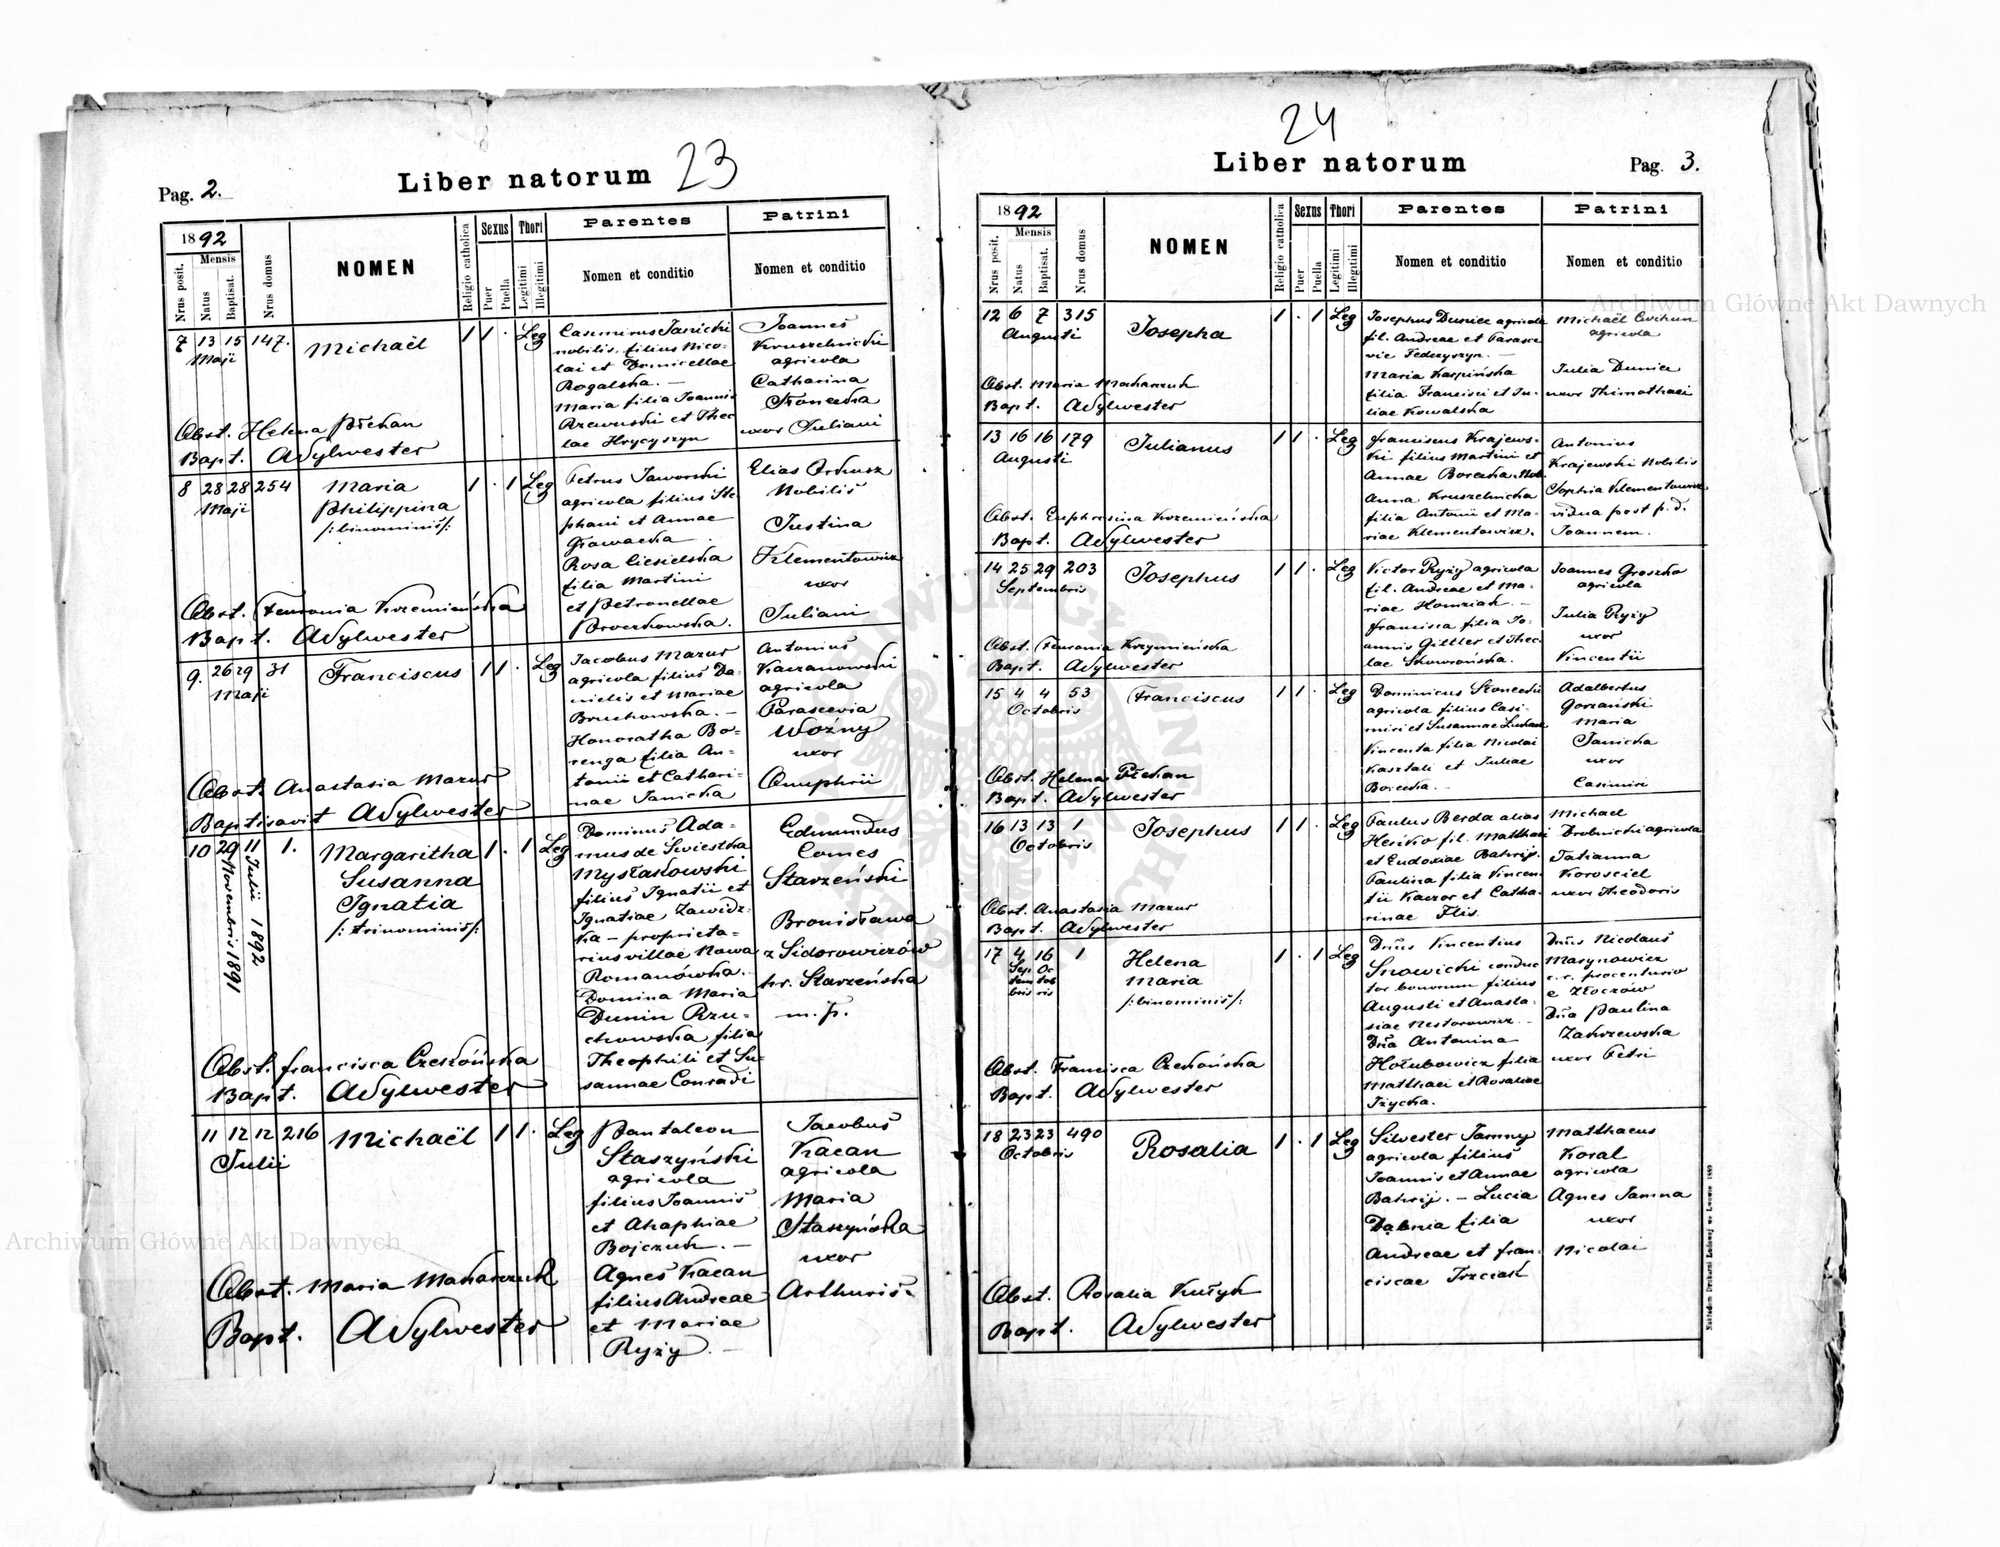 23
Liber natorum
Pag. 2.
1892
Nrus posit.
Mensis
Natus
Baptisat.
Nrus domus
NOMEN
Religio catholica
Sexus
Puer
Puella
Thori
Legitimi
Illegitimi
Parentes
Nomen et conditio
Patrini
Nomen et conditio
7 13 15 147. Michaël 1 1 . Leg
Maji
Casimirus Janicki
nobilis, filius Nico-
lai et Domicellae
Rogalska. —
Maria filia Joannis
Rzewuski et Thec
lae Hrycyszyn
Joannes
Kruszelnicki
agricola
Catharina
Skonecka
uxor Juliani
Obst. Helena Přehan
Bapt. ASylwester
8 28 28 254 Maria 1 . 1 Leg
Maji
Philippina
/:binominis/:
Petrus Jaworski
agricola filius Ste-
phani et Annae
Rosa Ciesielska
filia Martini
et Petronellae
Brzezkowska.
Elias Orkusz
Nobilis
Justina
Klementowicz
uxor
Juliani
Obst. Feuronia Krzemieńska
Bapt. ASylwester
9. 26 29 31 Franciscus 1 1 . Leg
Maji
Jacobus Mazur
agricola filius Da-
nielis et Mariae
Bruchowska. —
Honoratha Bo-
renga filia An-
tonii et Cathari-
nae Janicka
Antonius
Kaczanowski
agricola
Parascevia
Woźny
uxor
Onuphrii
Obst. Anastasia Mazur
Baptisavit ASylwester
10 29 11 1. Margaritha 1 . 1 Leg
Novembris 1891
Julii 1892
Susanna
Ignatia
/:trinominis/:
Dominus Ada-
mus de Swiestka
Mysłakowski
filius Ignatii et
Ignatiae Zawidz-
ka — proprieta-
rius villae Nowa
Romanówka.
Domina Maria
Dunin Rzu-
chowska filia
Theophili et Su-
sannae Conradi
Edmundus
Comes
Starzeński
Bronisława
z Sidorowiczów
hr. Starzeńska
m. p.
Obst. Francisca Czekońska
Bapt. ASylwester
11 12 12 216 Michaël 1 1 . Leg
Julii
Pantaleon
Staszyński
agricola
filius Joannis
et Ahaphiae
Bojczuk. —
Agnes Kacan
filius Andreae
et Mariae
Ryży. —
Jacobus
Kacan
agricola
Maria
Staszyńska
uxor
Arthuris.
Obst. Maria Makarczuk
Bapt. ASylwester
24
Liber natorum
Pag. 3.
1892
Nrus posit.
Mensis
Natus
Baptisat.
Nrus domus
NOMEN
Religio catholica
Sexus
Puer
Puella
Thori
Legitimi
Illegitimi
Parentes
Nomen et conditio
Patrini
Nomen et conditio
12 6 7 315 Josepha 1 . 1 Leg
Augusti
Josephus Duniec agricola
fil. Andreae et Parasce
vie Fedczyszyn. —
Maria Karpińska
filia Francisci et Ju-
liae Kowalska
Michaël Cvihun
agricola
Julia Duniec
uxor Thimothaei
Obst. Maria Makarczuk
Bapt. ASylwester
13 16 16 179 Julianus 1 1 . Leg
Augusti
Franciscus Krajews-
ki filius Martini et
Annae Borecka. Nob.
Anna Kruszelnicka
filia Antonii et Ma-
riae Klementowicz.
Antonius
Krajewski Nobilis
Sophia Klementowicz
vidua post p. d.
Joannem.
Obst. Euphrosina Krzemieńska
Bapt. ASylwester
14 25 29 203 Josephus 1 1 . Leg
Septembris
Victor Ryży agricola
fil. Andreae et Ma-
riae Homziak. —
Francisca filia Jo-
annis Gittler et Thec
lae Skowrońska.
Joannes Groszko
agricola
Julia Ryży
uxor
Vincentii
Obst. Feuronia Krzymieńska
Bapt. ASylwester
15 4 4 53 Franciscus 1 1 . Leg
Octobris
Dominicus Skonecki
agricola filius Casi-
miri et Susannae
Vincenta filia Nicolai
Kasztali et Juliae
Borecka. —
Adalbertus
Gorzański
Maria
Janicka
uxor
Casimiri
Obst. Helena Přehan
Bapt. ASylwester
16 13 13 1 Josephus 1 1 . Leg
Octobris
Paulus Berda alias
Heńko fil. Matthaei
et Eudoxiae Bahrij.
Paulina filia Vincen
tii Kaczor et Catha-
rinae Flis.
Michael
Drobnicki agricola
Tatianna
Korosciel
uxor Theodoris
Obst. Anastasia Mazur
Bapt. ASylwester
17 4 16 1 Helena 1 . 1 Leg
Sep Oc
tem tob
bris ris
Maria
/:binominis/:
Dnus Vincentius
Snowicki conduc
tor bonorum filius
Augusti et Anasta-
siae Nestorowicz. —
Dna Antonina
Hołubowicz filia
Matthaei et Rosaliae
Iżycka.
Dnus Nicolaus
Marynowicz
c. r. procenturio
e Złoczów
Dna Paulina
Zakrzewska
uxor Petri
Obst. Francisca Czekońska
Bapt. ASylwester
18 23 23 490 Rosalia 1 . 1 Leg
Octobris
Silvester Jamny
agricola filius
Joannis et Annae
Bahrij. — Lucia
Dąbnia filia
Andreae et Fran-
ciscae Trzciak
Matthaeus
Koral
agricola
Agnes Jamna
uxor
Nicolai
Obst. Rosalia Kułyk
Bapt. ASylwester
Nakładem Drukarni Ludowej we Lwowie 1889
Archiwum Główne Akt Dawnych
Archiwum Główne Akt Dawnych
ARCHIWUM GŁÓWNE AKT DAWNYCH